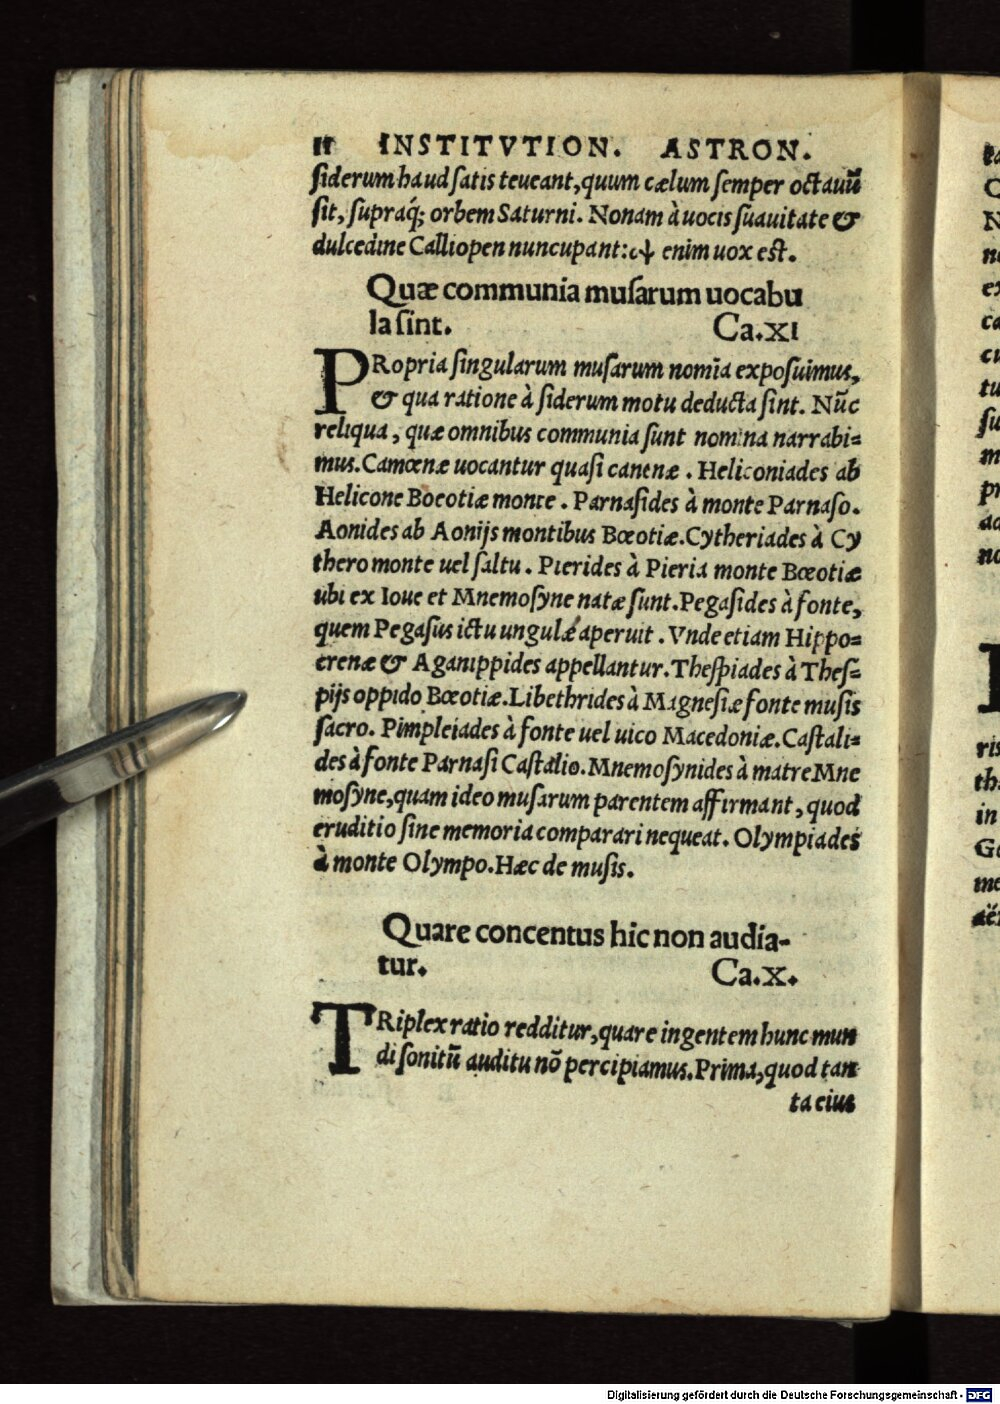 INSTITVTION. ASTRON.
siderum haud satis teueant, quum cælum semper octauū
sit, supraq́; orbem Saturni. Nonam à uocis suauitate &
dulcedine Calliopen nuncupant: enim uox est.
Quæ communia musarum uocabu
la sint. Ca.XI
PRopria singularum musarum nomīa exposuimus,
& qua ratione à siderum motu deducta sint. Nūc
reliqua, quæ omnibus communia sunt nomina narrabi=
mus. Camœnæ uocantur quasi canenæ. Heliconiades ab
Helicone Boeotiæ monte. Parnasides à monte Parnaso.
Aonides ab Aonijs montibus Bœotiæ. Cytheriades à Cy
thero monte uel saltu. Pierides à Pieria monte Bœotiæ
ubi ex Ioue et Mnemosyne natæ sunt. Pegasides à fonte,
quem Pegasus ictu ungulæ aperuit. Vnde etiam Hippo=
crenæ & Aganippides appellantur. Thespiades à Thes=
pijs oppido Bœotiæ. Libethrides à Magnesiæ fonte musis
sacro. Pimpleiades à fonte uel uico Macedoniæ. Castali=
des à fonte Parnasi Castalio. Mnemosynides à matre Mne
mosyne, quam ideo musarum parentem affirmant, quod
eruditio sine memoria comparari nequeat. Olympiades
à monte Olympo. Hæc de musis.
Quare concentus hic non audia-
tur. Ca.X.
TRiplex ratio redditur, quare ingentem hunc mun
di sonitū auditu nō percipiamus. Prima, quod tan
ta eius
Digitalisierung gefördert durch die Deutsche Forschungsgemeinschaft - DFG